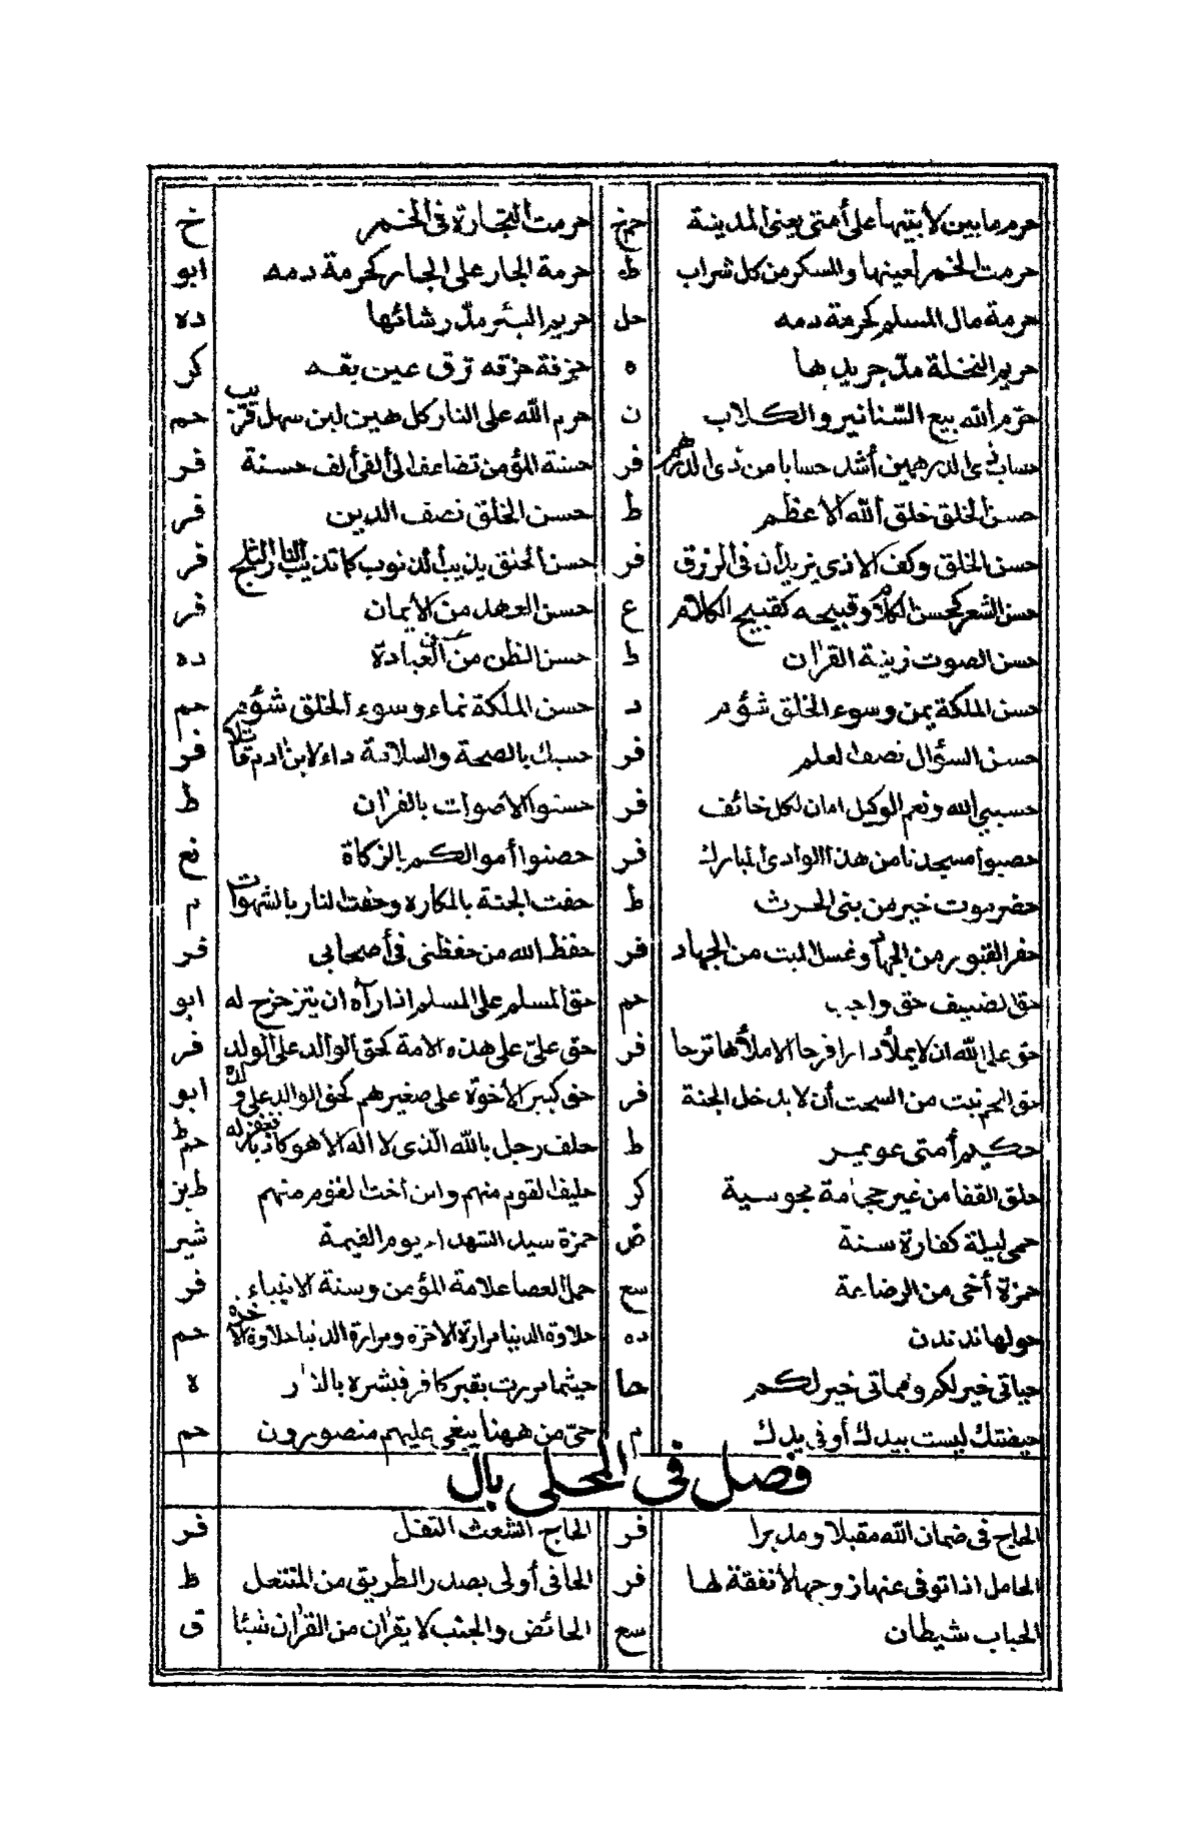 حرم ما بين لابتيها على أمتى يعنى المدينة خ حرمت التجارة فى الخمر خ
حرمت الخمر لعينها والسكر من كل شراب ط حرمة الجار على الجار كحرمة دمه ابو
حرمة مال المسلم كحرمة دمه حل حريم البئر مد رشائها ده
حريم النخلة مد جريدها ه حزقة حزقه ترق عين بقه كر
حرم الله بيع السنانير والكلاب ن حرم الله على النار كل هين لين سهل قريب حم
حساب ذى الدرهمين أشد حسابا من ذى الدرهم فر حسنة المؤمن تضاعف الى ألفى ألف حسنة فر
حسن الخلق خلق الله الاعظم ط حسن الخلق نصف الدين فر
حسن الخلق وكف الاذى يزيدان فى الرزق فر حسن الخلق يذيب الذنوب كما تذيب النار الثلج فر
حسن الشعر كحسن الكلام وقبيحه كقبيح الكلام ع حسن العهد من الايمان فر
حسن الصوت زينة القران ط حسن الظن من العبادة ده
حسن الملكة يمن وسوء الخلق شؤم د حسن الملكة نماء وسوء الخلق شؤم حم
حسن السؤال نصف العلم فر حسبك بالصحة والسلامة داء لابن ادم قاتلا فر
حسبي الله ونعم الوكيل امان لكل خائف فر حسنوا الاصوات بالقران ط
حصبوا مسجدنا من هذا الوادى المبارك فر حصنوا أموالكم بالزكاة نع
حضرموت خير من بنى الحرث ط حفت الجنة بالمكاره وحفت النار بالشهوات م
حفر القبور من الجهاد وغسل الميت من الجهاد فر حفظ الله من حفظنى فى أصحابى فر
حق الضييف حق واجب حم حق المسلم على المسلم اذا رآه ان يتزحزح له ابو
حق على الله ان لا يملأ دارا فرحا الا ملأها ترحا فر حق علىّ على هذه الامة كحق الوالد على الولد فر
حق لحم نبت من السحت أن لا يدخل الجنة فر حق كبير الأخوة على صغيرهم كحق الوالد على ولده ابو
حكيم أمتى عويمر ط حلف رجل بالله الذى لا اله الا هو كاذبا فغفر له حم ط
حلق القفا من غير حجامة مجوسية كر حليف القوم منهم وابن أخت القوم منهم طبز
حمى ليلة كفارة سنة ض حمزة سيد الشهداء يوم القيمة شير
حمزة أخى من الرضاعة سع حمل العصا علامة المؤمن وسنة الانبياء فر
حولها ندندن ده حلاوة الدنيا مرارة الاخره ومرارة الدنيا حلاوة الاخره حم
حياتى خير لكم ومماتى خير لكم حا حيثما مررت بقبر كافر فبشره بالنار ه
حيضتك ليست بيدك أو فى يدك م حىّ من ههنا يبغى عليهم منصورون حم
فصل فى المحلى بال
الحاج فى ضمان الله مقبلا ومدبرا فر الحاج الشعث التفل فر
الحامل اذا توفى عنها زوجها لا نفقة لها فر الحافى أولى بصدر الطريق من المنتعل ط
الحباب شيطان سع الحائض والجنب لا يقران من القران شيئا ق